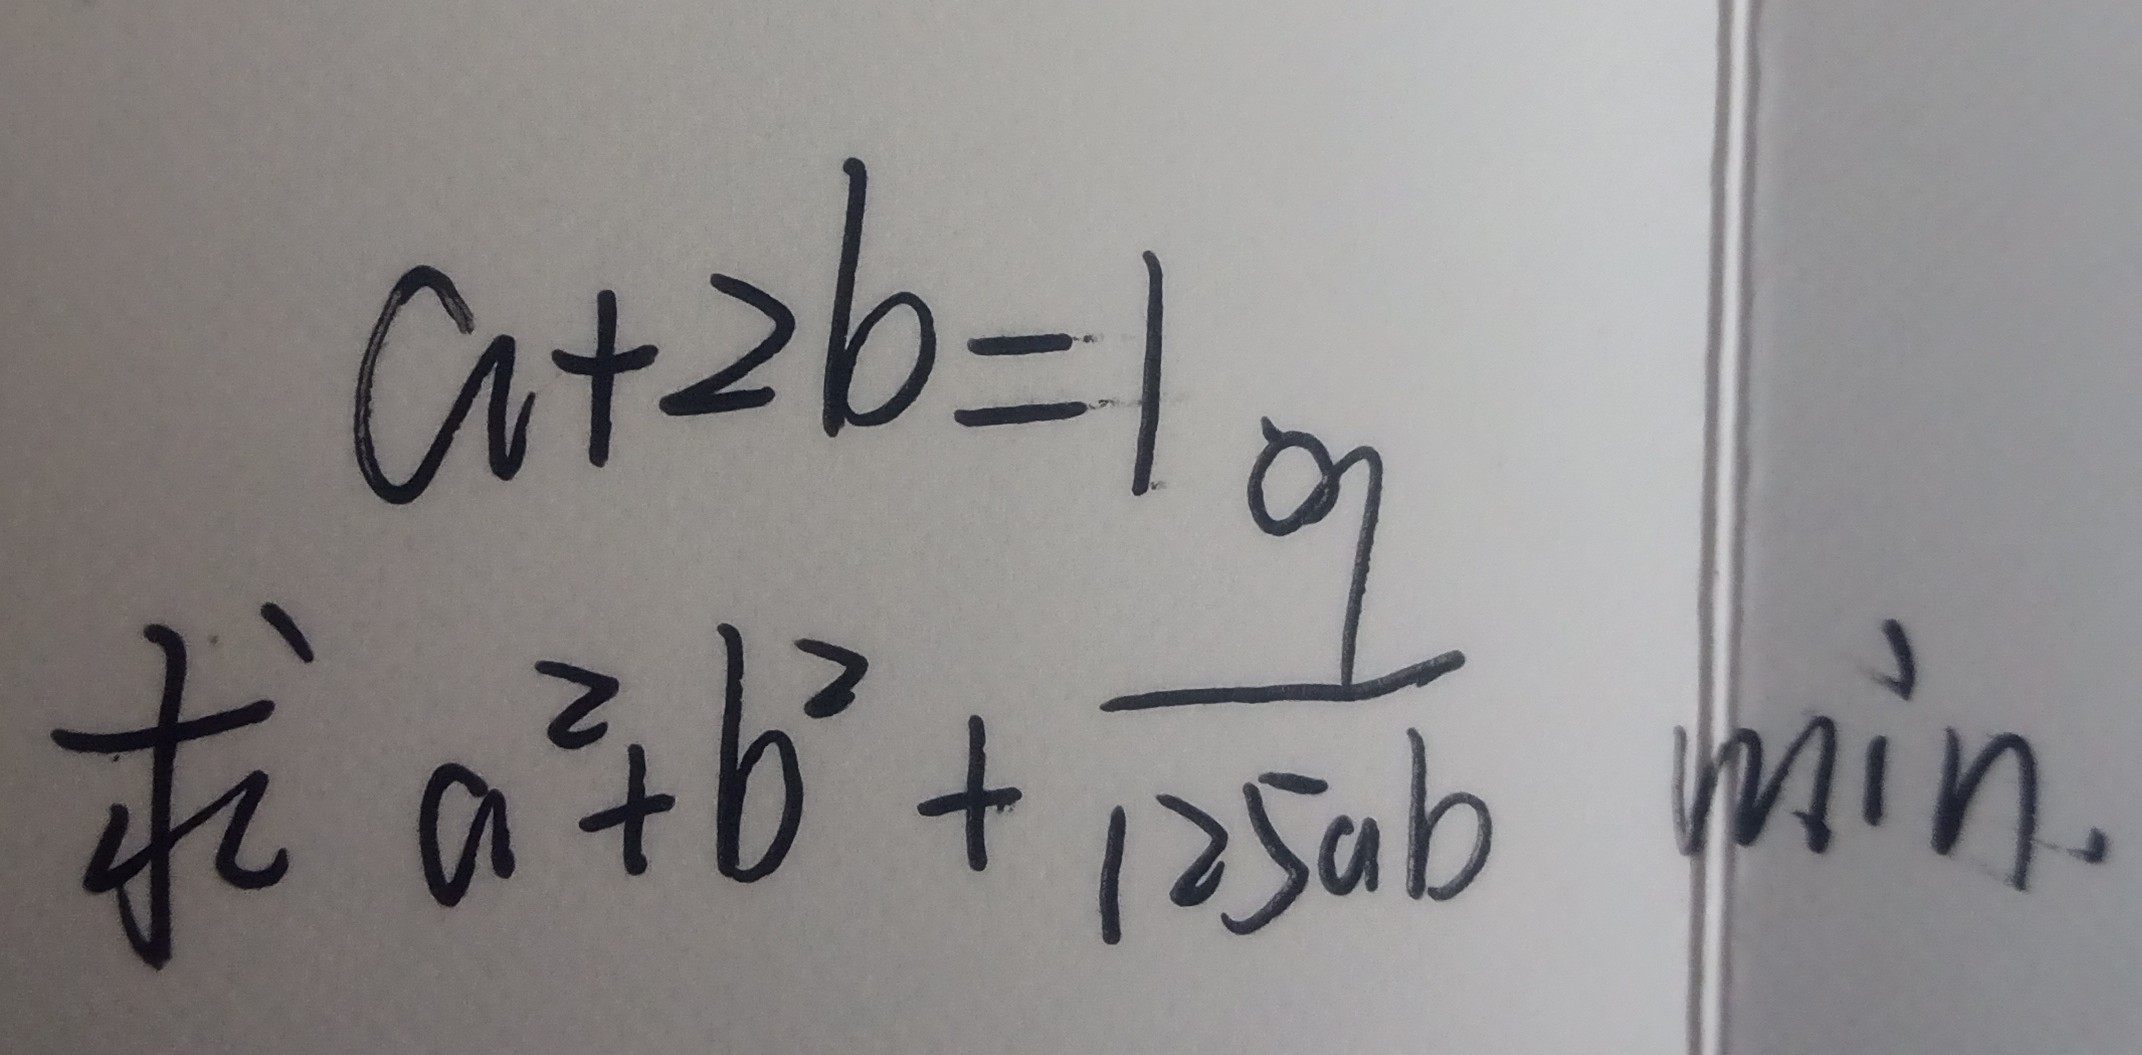 a+2b=1
求 a²+b²+9/125ab min.